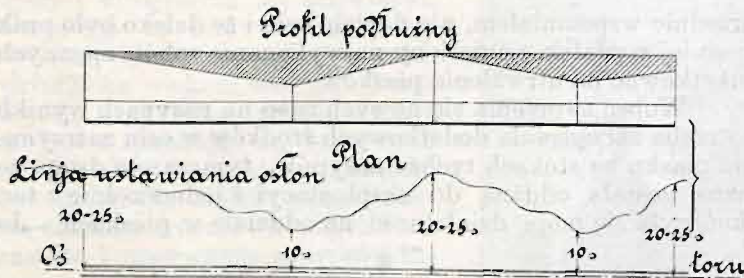 Profil podłużny
Plan
Linja ustawiania osłon
20-25.
10.
20-25.
10.
20-25.
Oś
toru